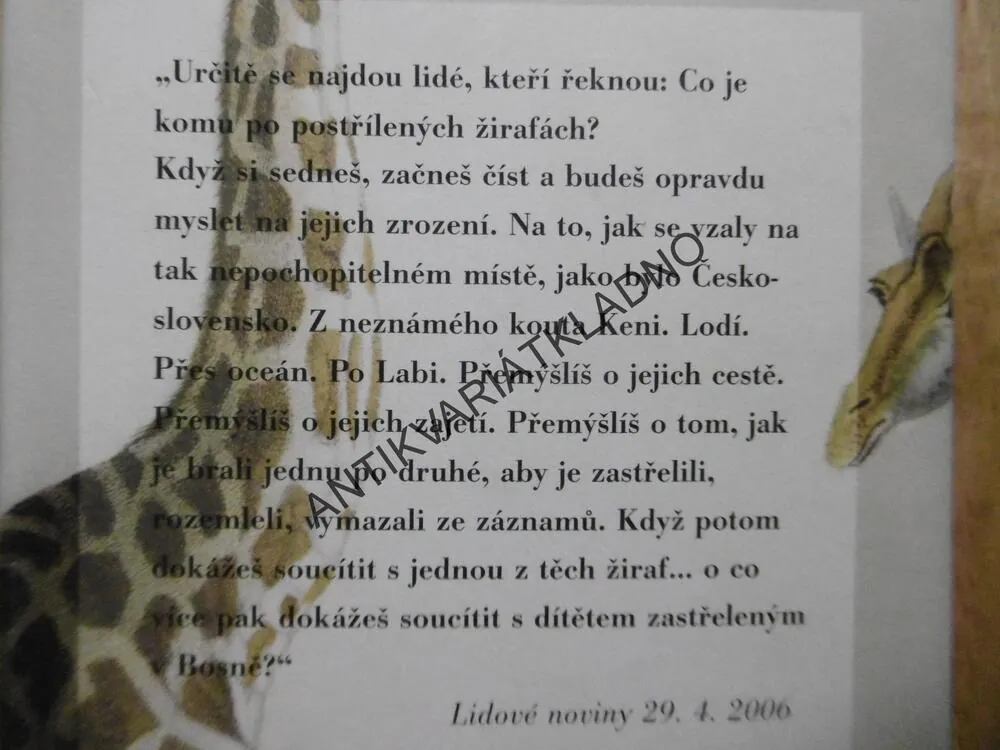 „Určitě se najdou lidé, kteří řeknou: Co je
komu po postřílených žirafách?
Když si sedneš, začneš číst a budeš opravdu
myslet na jejich zrození. Na to, jak se vzaly na
tak nepochopitelném místě, jako bylo Česko-
slovensko. Z neznámého kouta Keni. Lodí.
Přes oceán. Po Labi. Přemýšlíš o jejich cestě.
Přemýšlíš o jejich zajetí. Přemýšlíš o tom, jak
je brali jednu po druhé, aby je zastřelili,
rozemleli, vymazali ze záznamů. Když potom
dokážeš soucítit s jednou z těch žiraf... o co
více pak dokážeš soucítit s dítětem zastřeleným
v Bosně?“
Lidové noviny 29. 4. 2006
ANTIKVARIÁTKLADNO